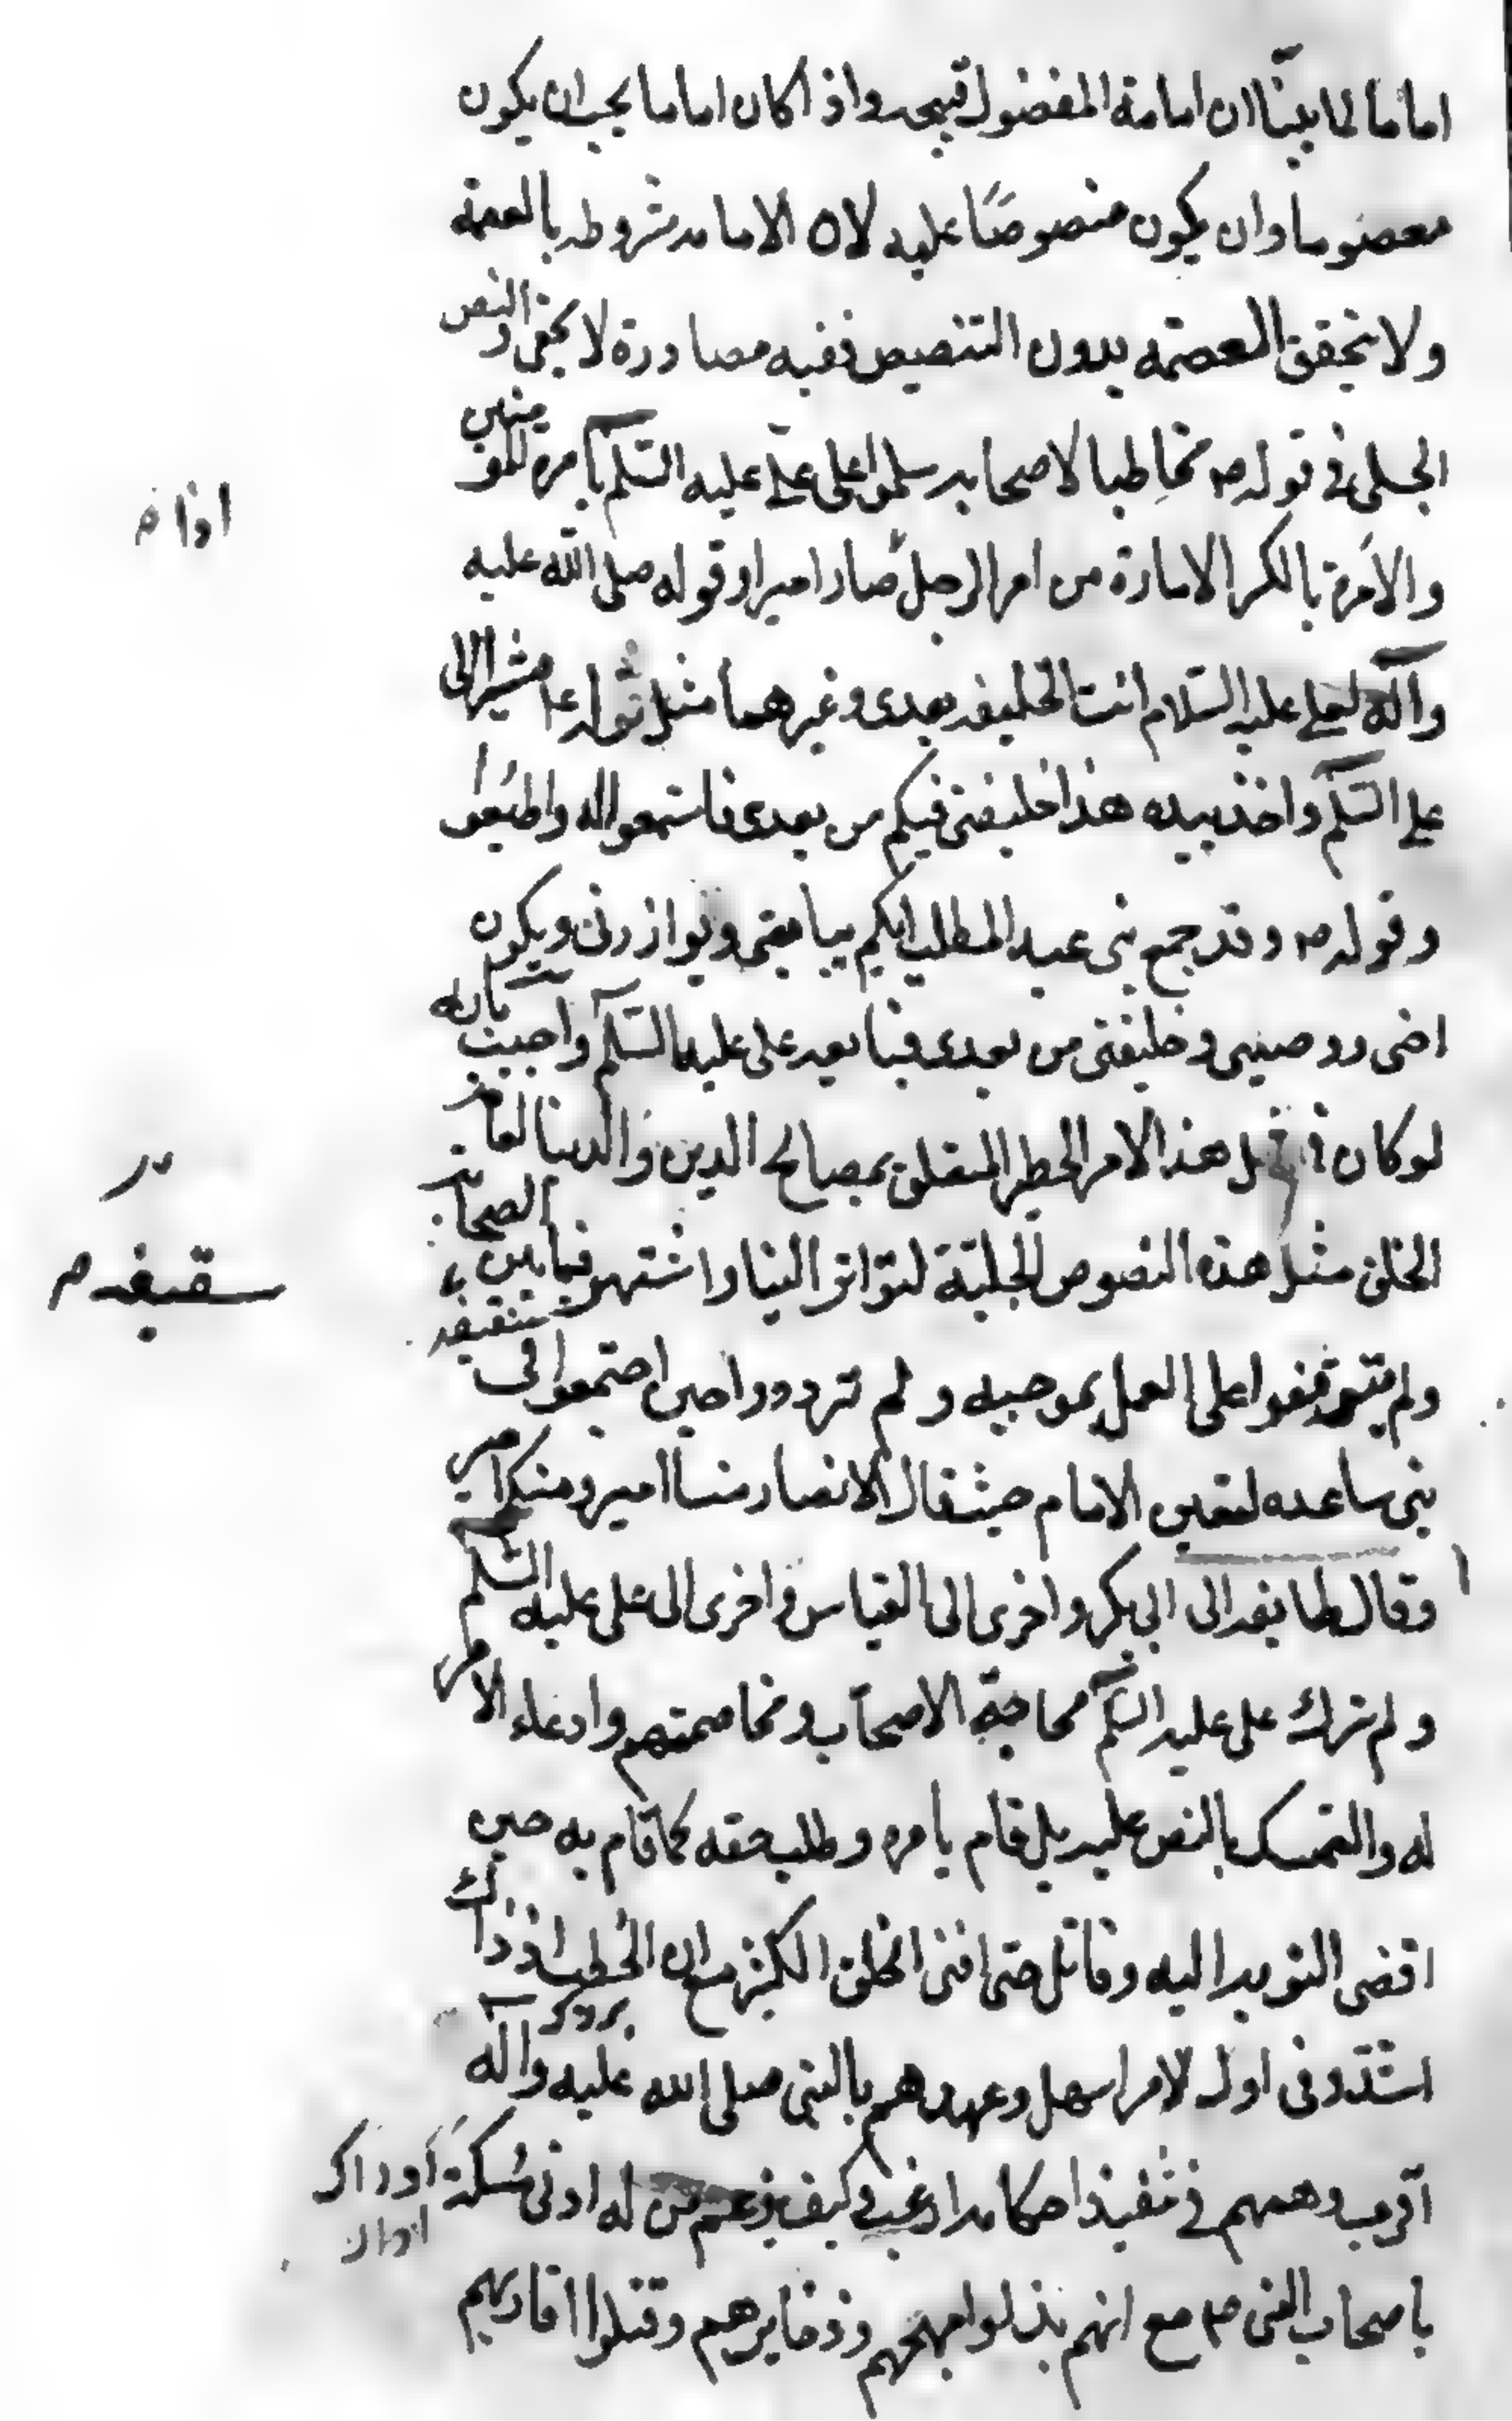 اماما لما بيّنا ان امامة المفضول قبيحه واذا كان اماما يجب ان يكون
معصوما وان يكون منصوصًا عليه لان الامامه مشروطه بالعصمة
ولا تتحقق العصمة بدون التنصيص ففيه مصادرة لا يخفى والنص
الجلى فى قوله ص مخاطبا لاصحابه سلموا على علىّ عليه السّلم بامرة المؤمنين
والاِمَرة بالكسر الامارة من امر الرجل صار اميرا وقوله صلى الله عليه
وآله لعلى عليه السّلام انت الخليفه بعدى وغيرهما مثل قوله ع مشيرا الى
على السّلم واخذ بيده هذا خليفتى فيكم من بعدى فاستمعوا له واطيعوا
وقوله ص وقد جمع بنى عبد المطلب ايكم يبايعنى ويوازرنى ويكون
اخى ووصيى وخليفتى من بعدى فبايعه على عليه السّلم واجيب بانه
لو كان فى مثل هذا الامر الخطير المتعلق بمصالح الدين والدنيا لعامة
الخلق مثل هذه النصوص الجلية لتواتر اليناواشتهر فيما بين الصحابة
ولم يتوقفوا على العمل بموجبه ولم يترددوا حين اجتمعوا فى سقيفه
بنى ساعده لتعيين الامام حيث قال الانصار منا امير ومنكم امير
وقال طايفه الى ابى بكر واخرى الى العباس واخرى الى على عليه السّلم
ولم ترك على عليه السلم محاجة الاصحاب ومخاصمتهم وادعاء الامر
له والتمسك بالنص عليه بل قام بامره وطلب حقه كما قام به حين
افضى النوبه اليه وقاتل حتى افنى الخلق الكثير مع ان الخطب اذ ذاك
اشد وفى اول الامر اسهل وعهدهم بالنبى صلى الله عليه وآله
اقرب وهمهم فى تنفيذ احكامه ارغب وكيف يزعم من له ادنى مُسكة
باصحاب النبى ص مع انهم بذلوا مهجهم وذخايرهم وقتلوا اقاربهم
سقيفه م